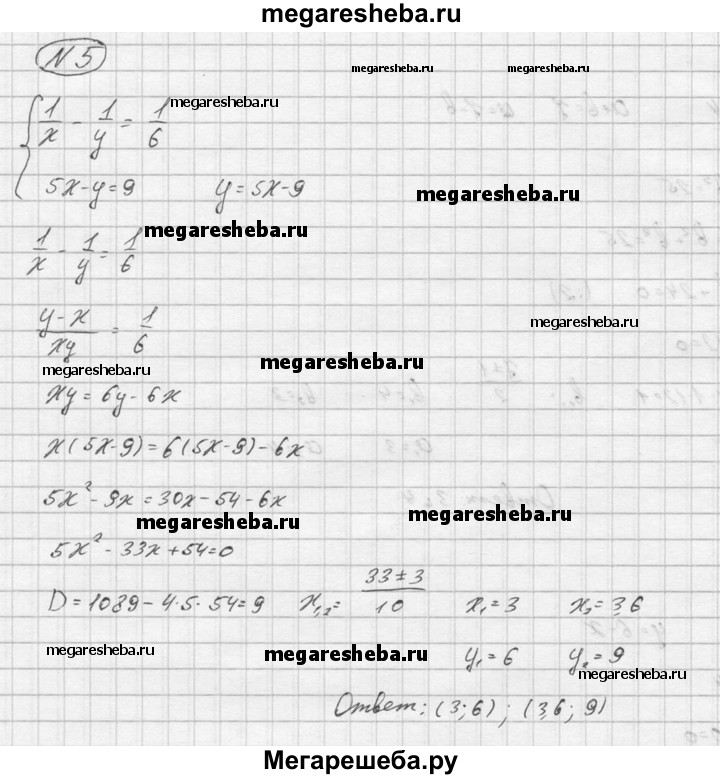 megaresheba.ru
N 5
megaresheba.ru megaresheba.ru
1/x - 1/y = 1/6 megaresheba.ru
5x-y=9 y=5x-9 megaresheba.ru
megaresheba.ru
1/x - 1/y = 1/6
megaresheba.ru
(y-x)/(xy) = 1/6
megaresheba.ru megaresheba.ru
xy = 6y - 6x
x(5x-9) = 6(5x-9) - 6x
5x² - 9x = 30x - 54 - 6x
megaresheba.ru megaresheba.ru
5x² - 33x + 54 = 0
D = 1089 - 4·5·54 = 9 x₁,₂ = (33±3)/10 x₁ = 3 x₂ = 3,6
megaresheba.ru megaresheba.ru y₁ = 6 y₂ = 9
megaresheba.ru
Ответ: (3;6) ; (3,6; 9)
Мегарешеба.ру